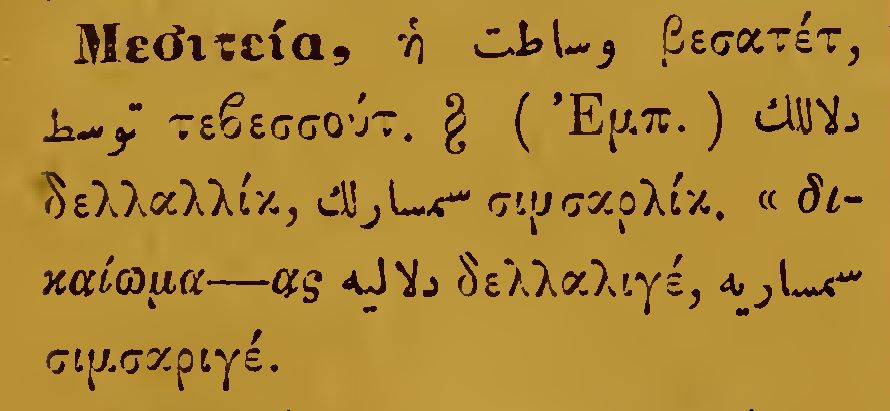 Μεσιτεία, ἡ وساطت βεσατέτ,
توسط τεβεσσούτ. § (Ἐμπ.) دلاللك
δελλαλλίκ, سمسارلك σιμσαρλίκ. « δι-
καίωμα—ας دلاليه δελλαλιγέ, سمساريه
σιμσαριγέ.